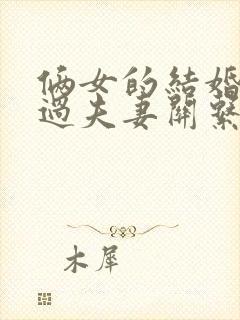 俩女的結婚
過夫妻關繫
木犀